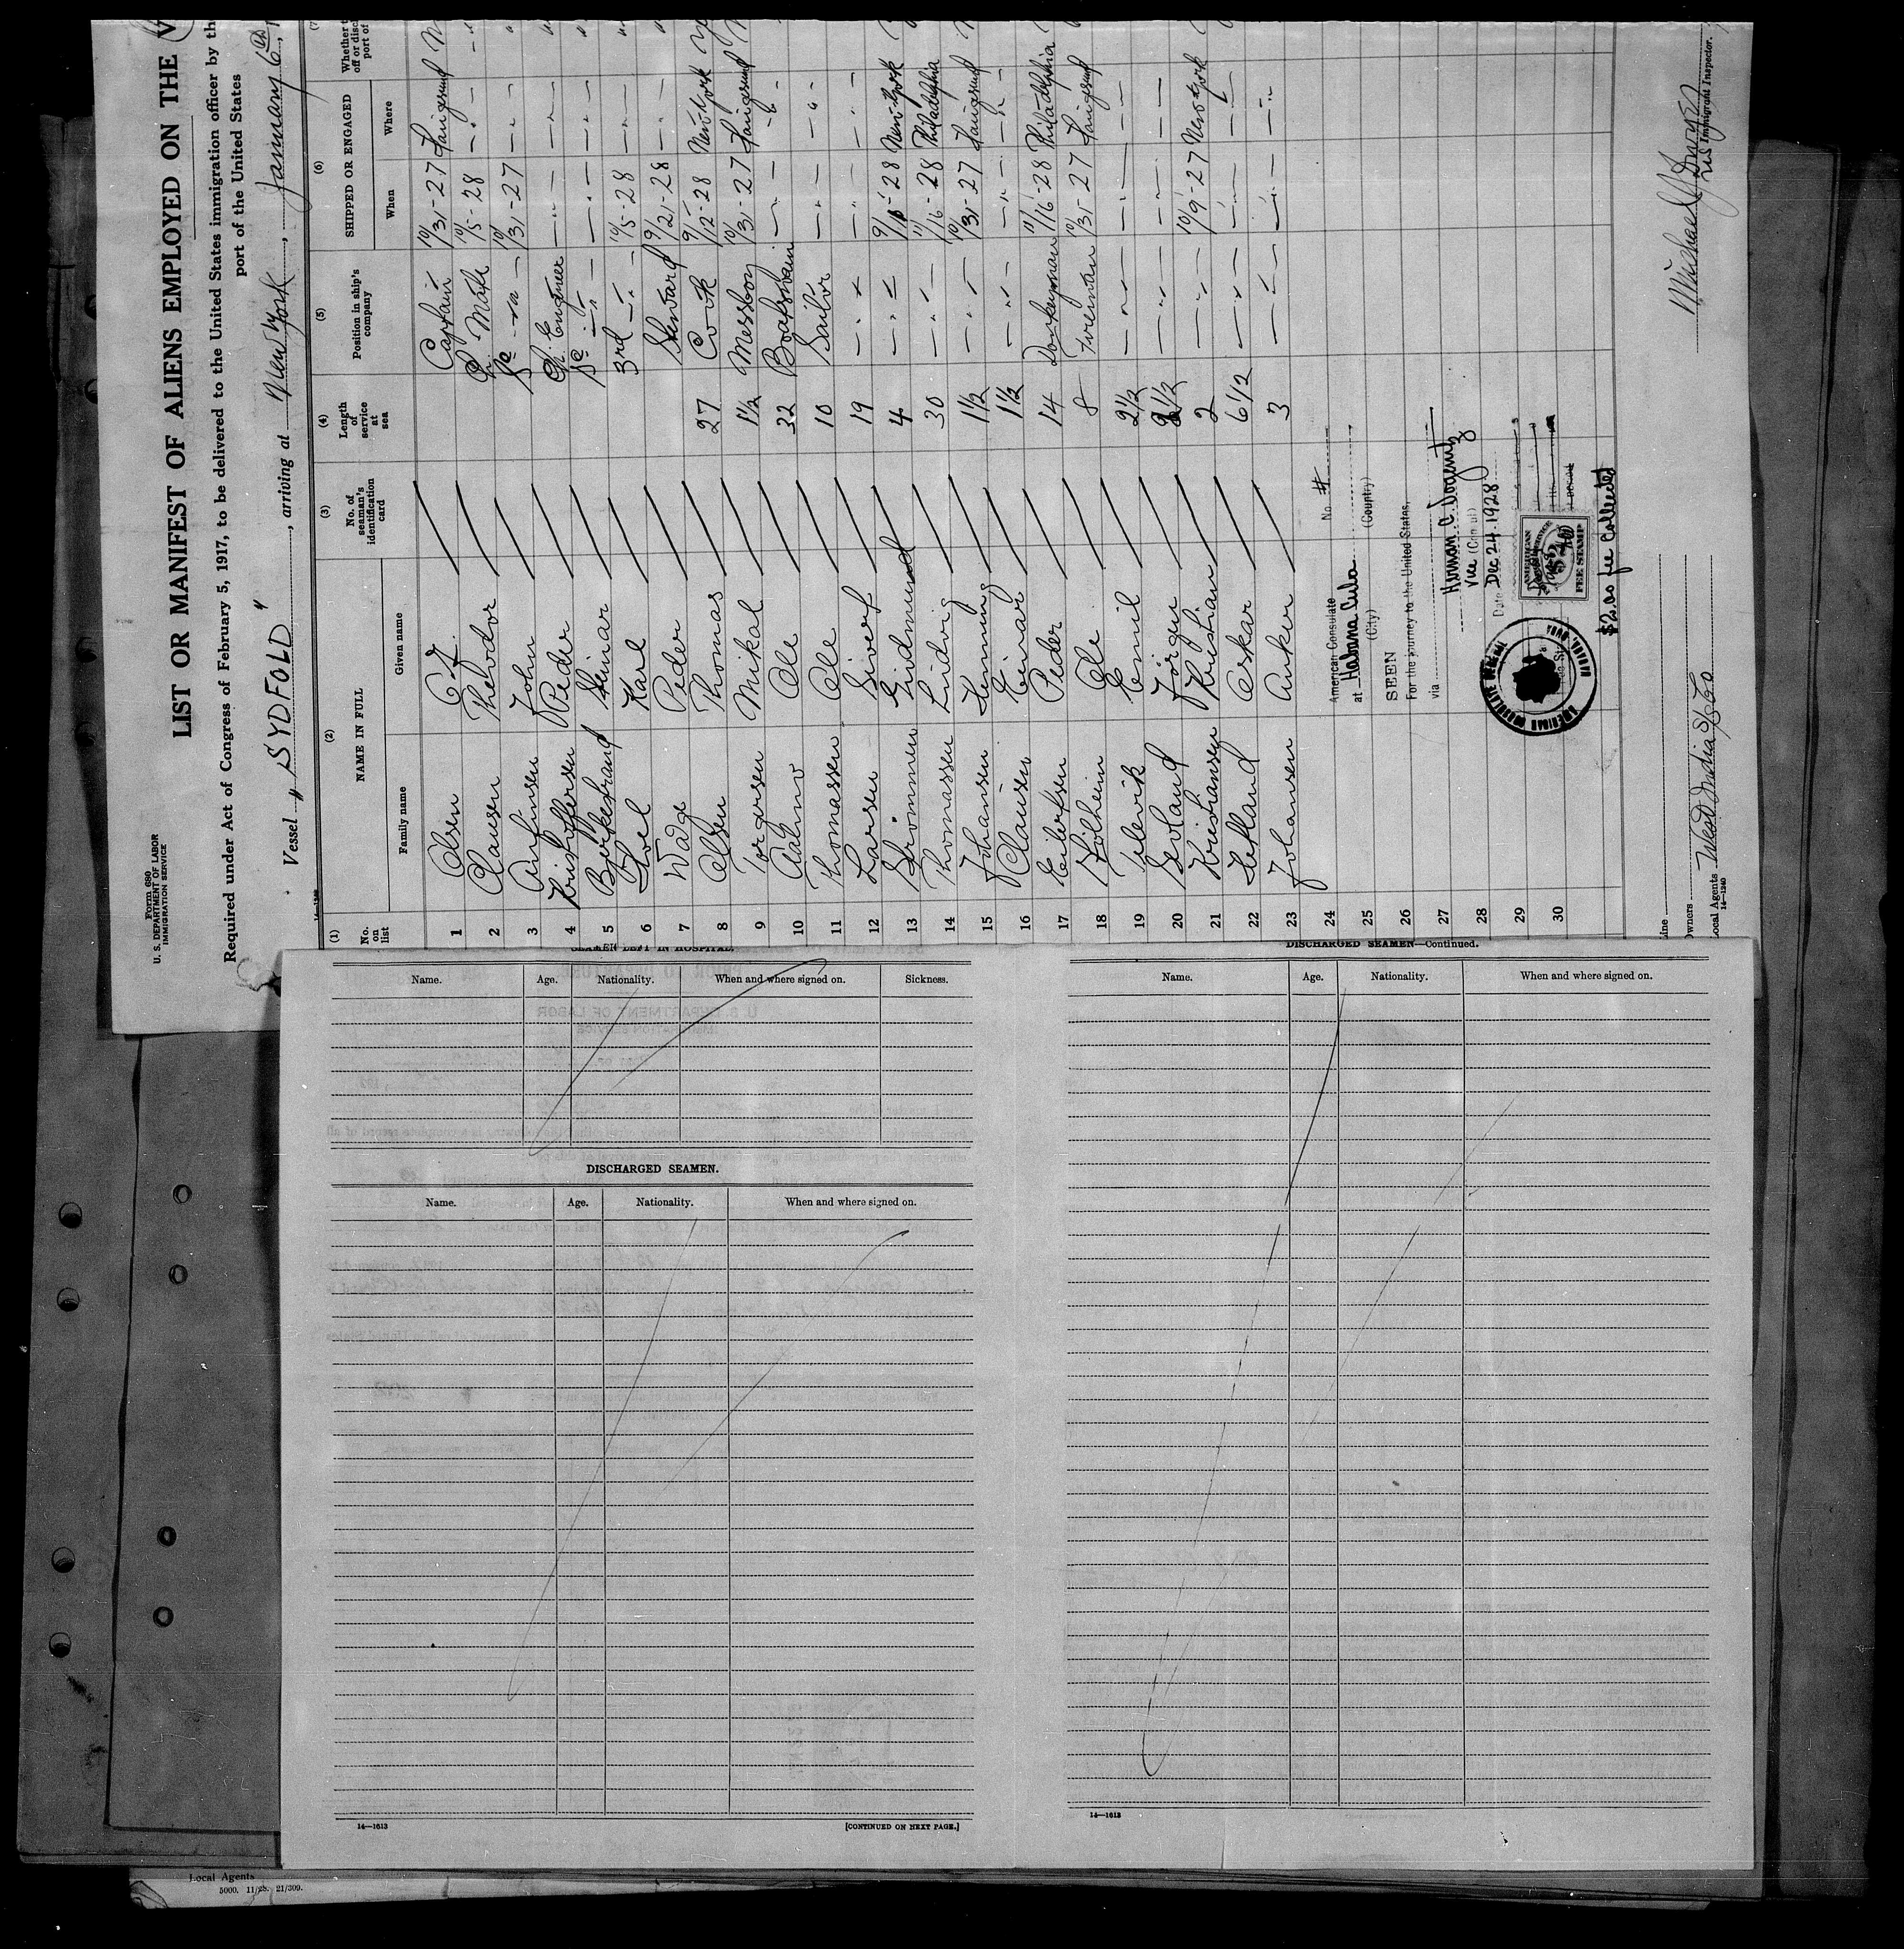 Form 680
U. S. DEPARTMENT OF LABOR
IMMIGRATION SERVICE
LIST OR MANIFEST OF ALIENS EMPLOYED ON THE
Required under Act of Congress of February 5, 1917, to be delivered to the United States immigration officer by th
port of the United States
Vessel "SYDFOLD", arriving at New York, January 6th,
(1) (2) (3) (4) (5) (6) (7)
No. on list NAME IN FULL No. of seaman's identification card Length of service at sea Position in ship's company SHIPPED OR ENGAGED Whether t
off or disch
port of
Family name Given name When Where
1 Olsen Captain 10/31-27 Langesund
2 Clausen Theodor Ch. Mate 10/15-28 -"-
3 Anfinsen John 10/31-27 -"-
4 Kristoffersen Peder Ch. Engineer -"- -"-
5 Einar -"- -"- -"-
6 Karl 3rd -"- 10/15-28 -"-
7 Wadge Peder Steward 9/21-28 -"-
8 Olsen Thomas 27 Cook 9/12-28 New York
9 Torgersen Mikal 1½ Messboy 10/31-27 Langesund
10 Ole 32 Boatswain -"- -"-
11 Thomassen Ole 10 Sailor -"- -"-
12 Larsen Sivert 19 -"- -"- -"-
13 Strømmen Gudmund 4 -"- 9/16-28 New-York
14 Thomassen Ludvig 30 -"- 11/16-28 Philadelphia
15 Johansen Henning 1½ -"- 10/31-27 Langesund
16 Clausen Einar 1½ -"- -"- -"-
17 Eilertsen Peder 14 Donkeyman 11/16-28 Philadelphia
18 Holheim Ole 8 Fireman 10/31-27 Langesund
19 Emil 2½ -"- -"- -"-
20 Jörgen 2½ -"- -"- -"-
21 Kristiansen Kristian 2 -"- 10/9-27 New York
22 Oskar 6 1/2 -"- -"- -"-
23 Johansen Anker 3 -"- -"- -"-
24
25
26
27
28
29
30
American Consulate No. #
at Habana Cuba
(City) (Country)
SEEN
For the journey to the United States,
via
Vice (Consul)
Date Dec 24. 1928
AMERICAN
$2
FEE STAMP
$2.00 fee collected
Line
Owners
Local Agents West India S/S Co
14—1240
Michael
US Immigrant Inspector.
SEAMEN LEFT IN HOSPITAL.
Name. Age. Nationality. When and where signed on. Sickness.
DISCHARGED SEAMEN.
Name. Age. Nationality. When and where signed on.
14—1613 [CONTINUED ON NEXT PAGE.]
DISCHARGED SEAMEN—Continued.
Name. Age. Nationality. When and where signed on.
14—1613
Local Agents
5000. 11/28. 21/309.